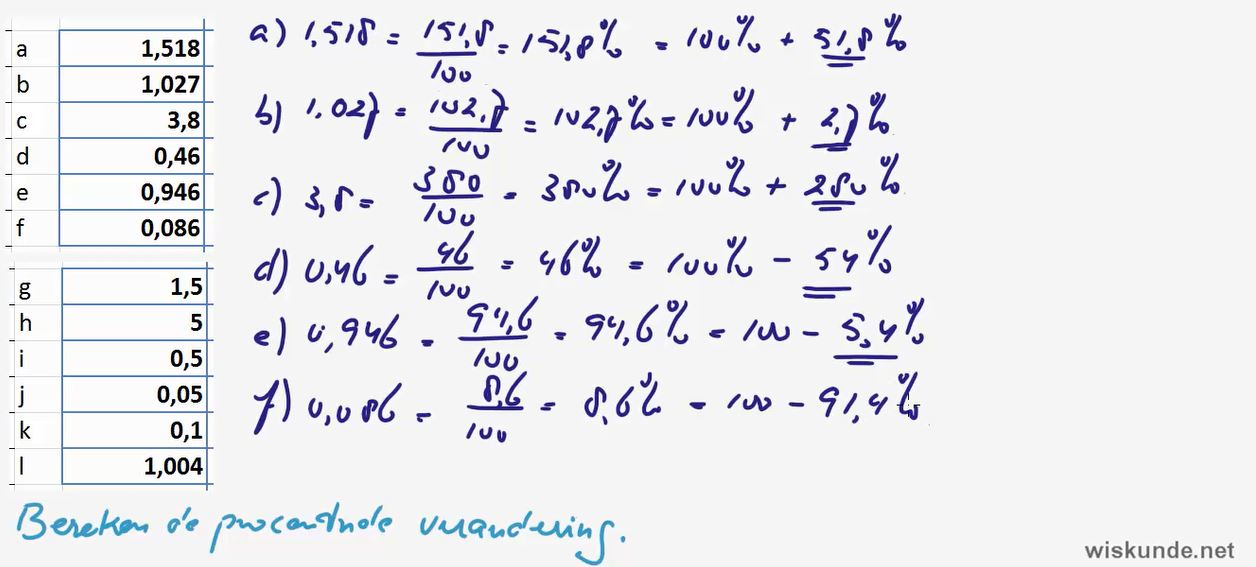 a 1,518
b 1,027
c 3,8
d 0,46
e 0,946
f 0,086
g 1,5
h 5
i 0,5
j 0,05
k 0,1
l 1,004
a) 1,518 = 151,8/100 = 151,8% = 100% + 51,8%
b) 1.027 = 102,7/100 = 102,7% = 100% + 2,7%
c) 3,8 = 380/100 = 380% = 100% + 280%
d) 0,46 = 46/100 = 46% = 100% - 54%
e) 0,946 = 94,6/100 = 94,6% = 100 - 5,4%
f) 0,086 = 8,6/100 = 8,6% = 100 - 91,4%
Bereken de procentuele verandering.
wiskunde.net